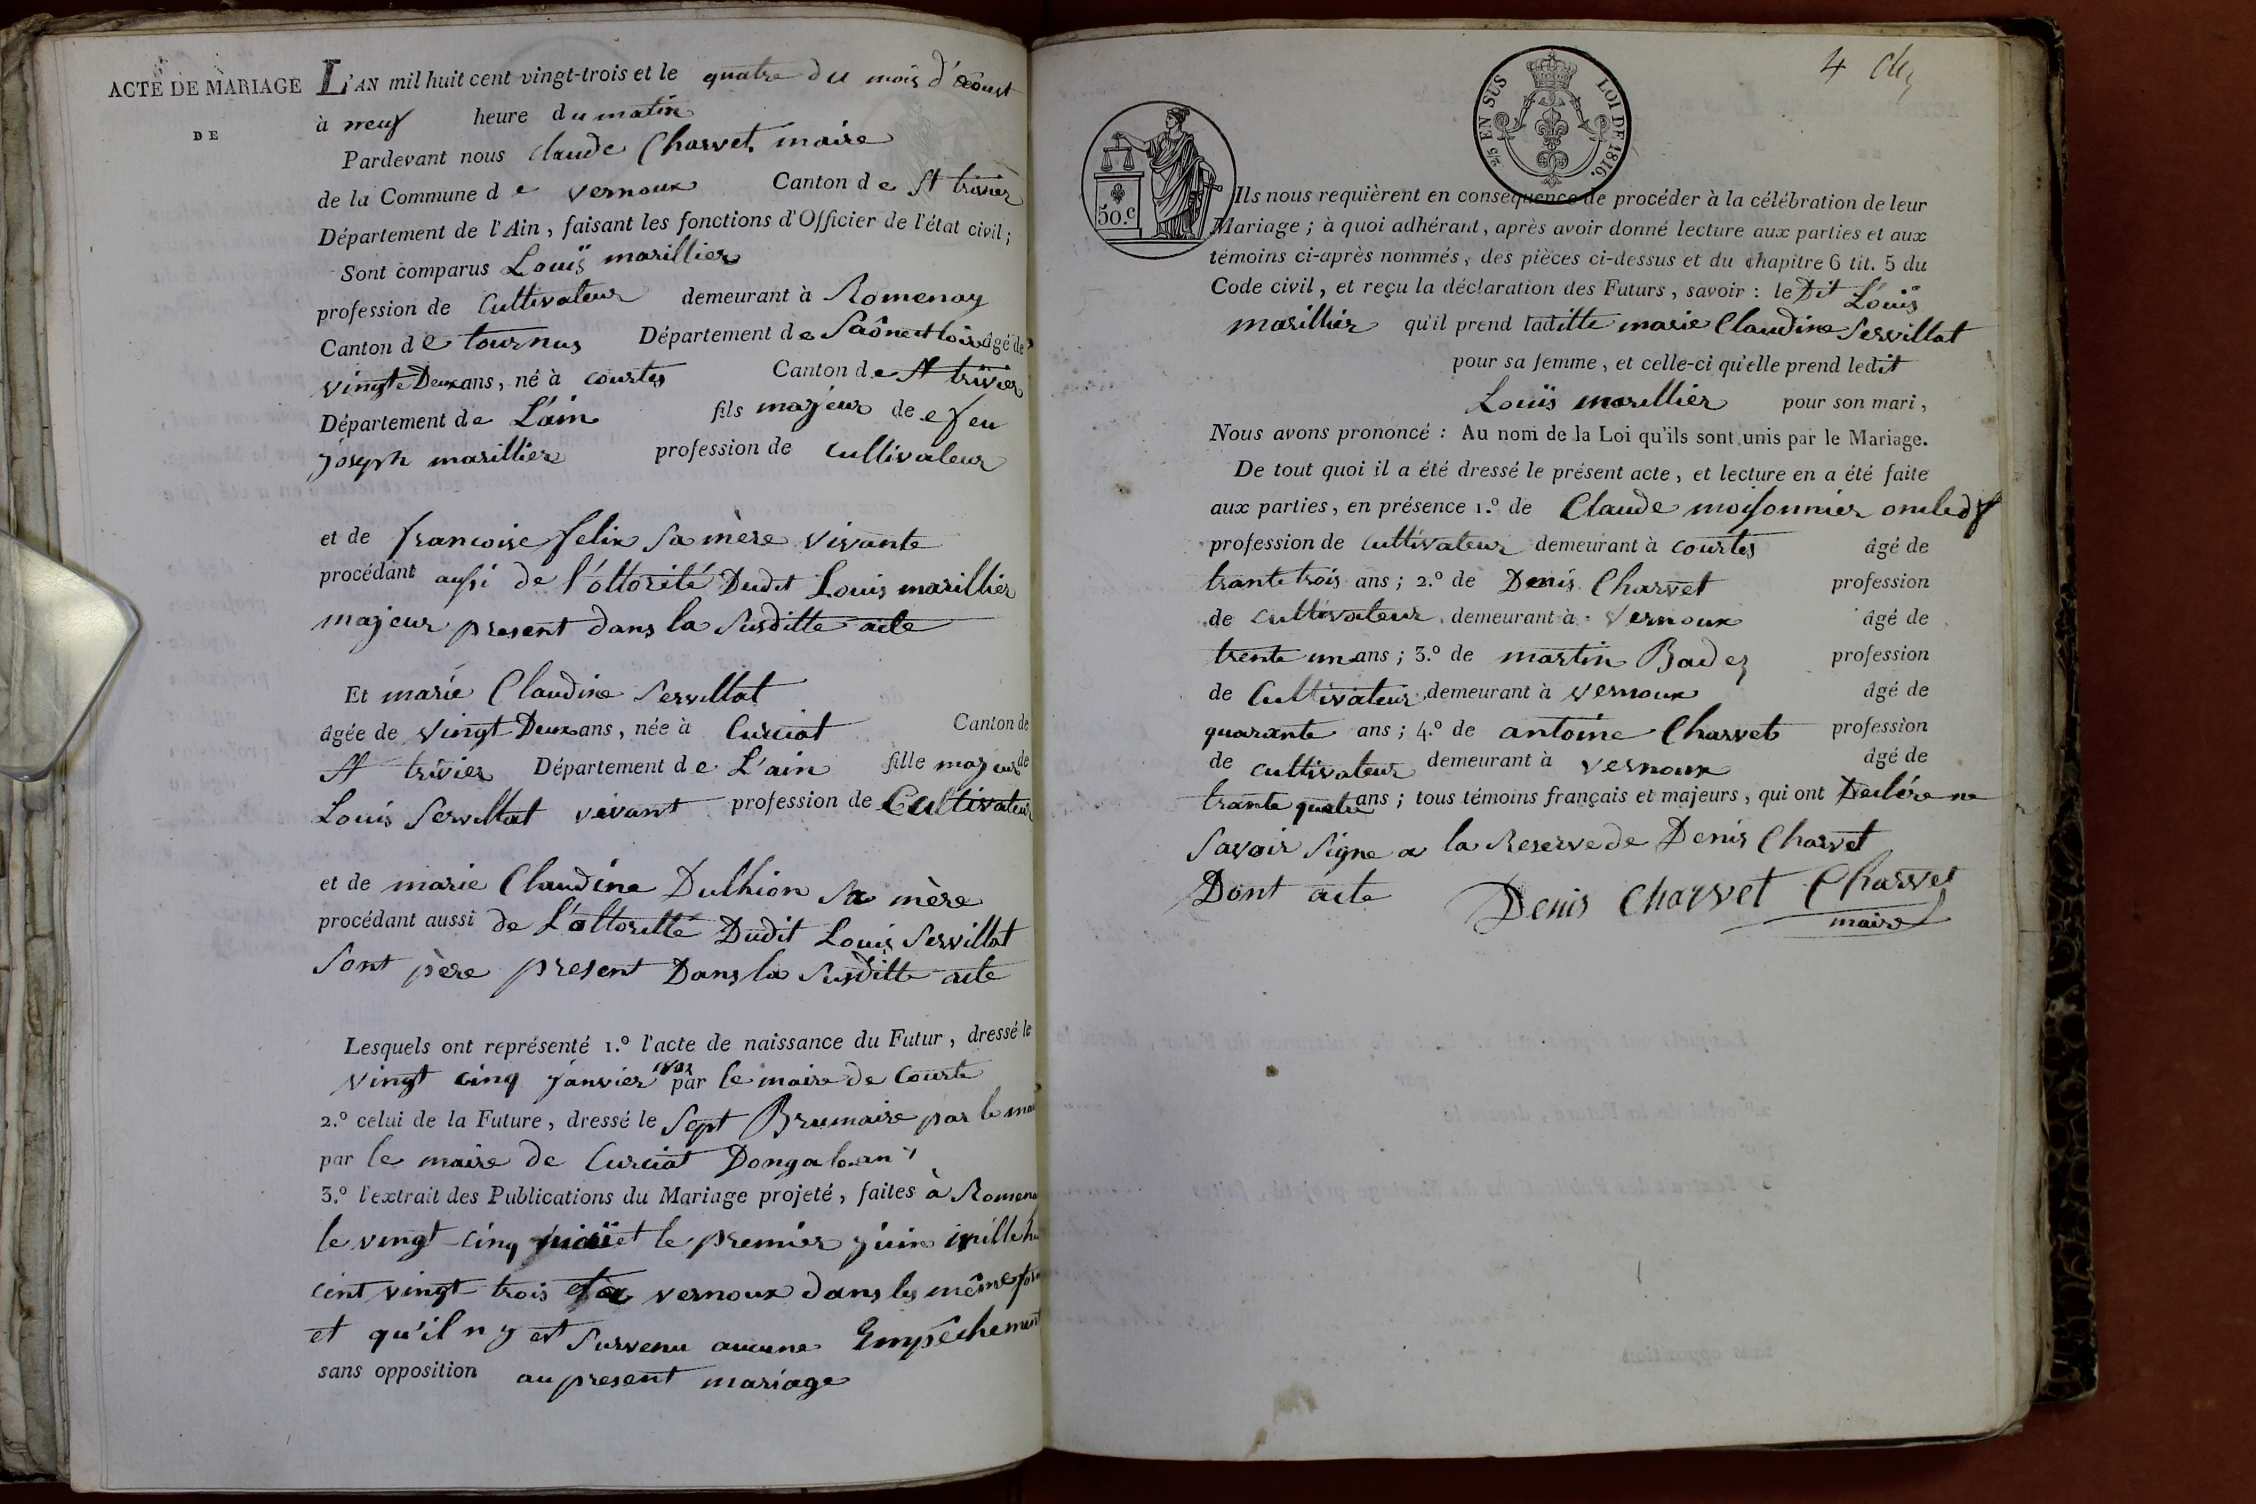 ACTE DE MARIAGE
DE
L'AN mil huit cent vingt-trois et le quatre du mois d'aôust
à neuf heure du matin
Pardevant nous Claude Charvet maire
de la Commune de vernoux Canton de St trivier
Département de l'Ain, faisant les fonctions d'Officier de l'état civil;
Sont comparus Louïs marillier
profession de Cultivateur demeurant à Romenay
Canton de tournus Département de Saône et loire âgé de
vingte Deux ans, né à courtes Canton de St trivier
Département de L'ain fils majeur de feu
joseph marillier profession de cultivateur
et de francoise felix Sa mère vivante
procédant aussi de l'ottorité Dudit Louis marillier
majeur present dans la Susditte acte
Et marie Claudine Servillat
âgée de vingt Deux ans, née à Curciat Canton de
St trivier Département de L'ain fille majeur de
Louis Servillat vivant profession de Cultivateur
et de marie Claudine Dulhion Sa mère
procédant aussi de L'ottoritté Dudit Louis Servillat
Sont père present Dans la Susditte acte
Lesquels ont représenté 1.º l'acte de naissance du Futur, dressé le
vingt cinq janvier par le maire de Courte
2.º celui de la Future, dressé le Sept Brumaire par le mai
par le maire de Curciat Dongalean
3.º l'extrait des Publications du Mariage projeté, faites à Romena
le vingt-cinq et le premier juin mille hu
cent vingt trois et a vernoux dans les même
et qu'il n y est Survenu aucune Empêchement
sans opposition au present mariage
4 Ch
25 EN SUS LOI DE 1816.
50.c
Ils nous requièrent en conséquence de procéder à la célébration de leur
Mariage; à quoi adhérant, après avoir donné lecture aux parties et aux
témoins ci-après nommés, des pièces ci-dessus et du chapitre 6 tit. 5 du
Code civil, et reçu la déclaration des Futurs, savoir: le Dit Louïs
marillier qu'il prend laditte marie Claudine Servillat
pour sa femme, et celle-ci qu'elle prend ledit
Louïs marillier pour son mari,
Nous avons prononcé: Au nom de la Loi qu'ils sont unis par le Mariage.
De tout quoi il a été dressé le présent acte, et lecture en a été faite
aux parties, en présence 1.º de Claude moissonnier
profession de cultivateur demeurant à courtes âgé de
trante trois ans; 2.º de Denis Charvet profession
de cultivateur demeurant à vernoux âgé de
trente un ans; 3.º de martin Badez profession
de Cultivateur demeurant à vernoux âgé de
quarante ans; 4.º de antoine Charvet profession
de cultivateur demeurant à vernoux âgé de
trante quatre ans; tous témoins français et majeurs, qui ont Declére ne
Savoir Signe a la Reserve de Denis Charvet
Dont acte Denis Charvet Charvet
maire